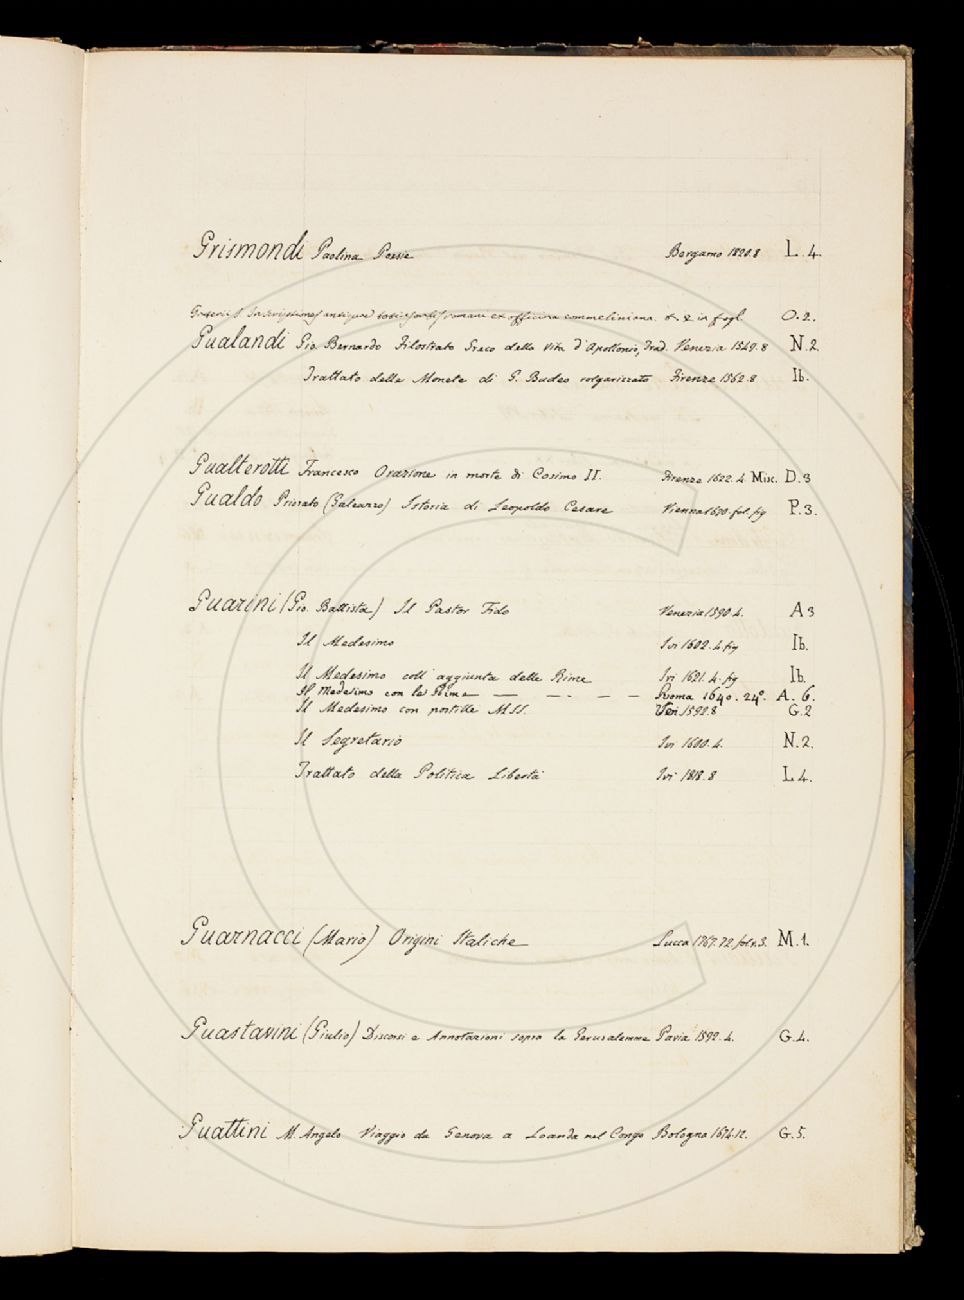 Grismondi Paolina Poesie Bergamo 1820.8 L.4.
Gruterii Inscriptiones antiquae totius orbis romani ex officina commeliniana in fogl. O.2.
Gualandi Gio. Bernardo Filostrato Greco della Vita d'Apollonio, Trad. Venezia 1549.8 N.2.
Trattato delle Monete di G. Budeo volgarizzato Firenze 1562.8 Ib.
Gualterotti Francesco Orazione in morte di Cosimo II. Firenze 1622.4 Misc. D.3
Gualdo Priorato (Galeazzo) Istoria di Leopoldo Cesare Vienna 1670. fol. fig P.3.
Guarini (Gio. Battista) Il Pastor Fido Venezia 1590.4. A3
Il Medesimo Ivi 1602.4 fig Ib.
Il Medesimo coll'aggiunta delle Rime Ivi 1621.4. fig Ib.
Il Medesimo con le Rime — — - — — Roma 1640. 24°. A. 6.
Il Medesimo con postille MSS. Ven 1592.8 G.2
Il Segretario Ivi 1600.4. N.2.
Trattato della Politica Libertà Ivi 1818.8 L.4.
Guarnacci (Mario) Origini Italiche Lucca 1767.72. fol. v.3. M.1.
Guastavini (Giulio) Discorsi e Annotazioni sopra la Gerusalemme Pavia 1592.4. G.4.
Guattini M. Angelo Viaggio da Genova a Loanda nel Congo Bologna 1674.12. G.5.